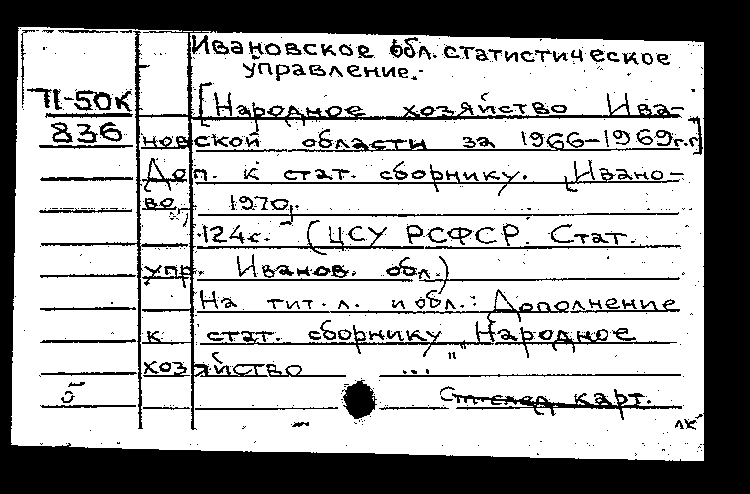 Ивановское обл. статистическое
управление.-
П-50к
836
[Народное хозяйство Ива-
новской области за 1966-1969г.г.]
Доп. к стат. сборнику. [Ивано-
во, 1970].
124с. (ЦСУ РСФСР. Стат.
упр. Иванов. обл.)
На тит. л. и обл.: Дополнение
к стат. сборнику "Народное
хозяйство ..."
5
карт.
лк